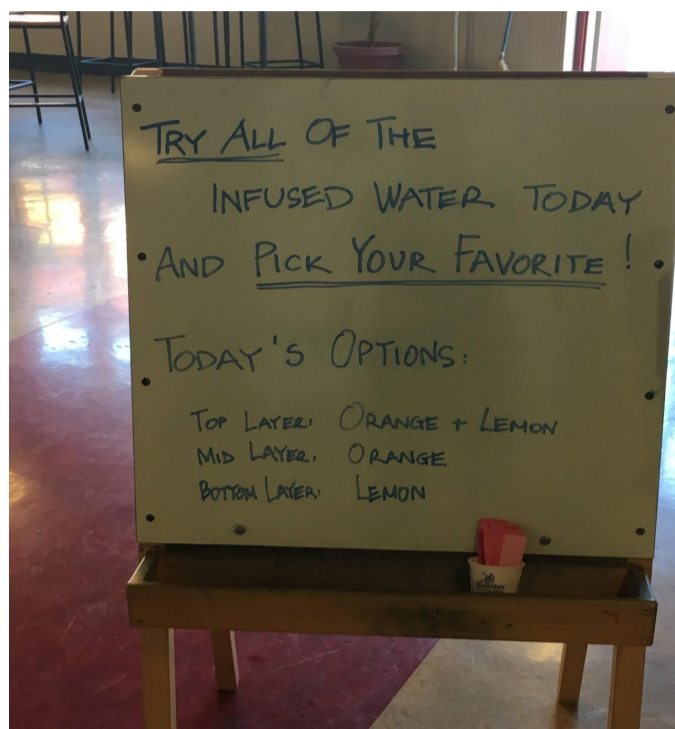 TRY ALL OF THE
INFUSED WATER TODAY
AND PICK YOUR FAVORITE!
TODAY'S OPTIONS:
TOP LAYER: ORANGE + LEMON
MID LAYER: ORANGE
BOTTOM LAYER: LEMON